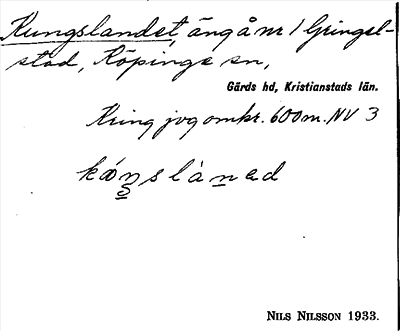 Kungslandet, äng å nr 1 Gringel-
stad, Köpinge sn,
Gärds hd, Kristianstads län.
Kring jvg omkr. 600 m. NV 3
NILS NILSSON 1933.